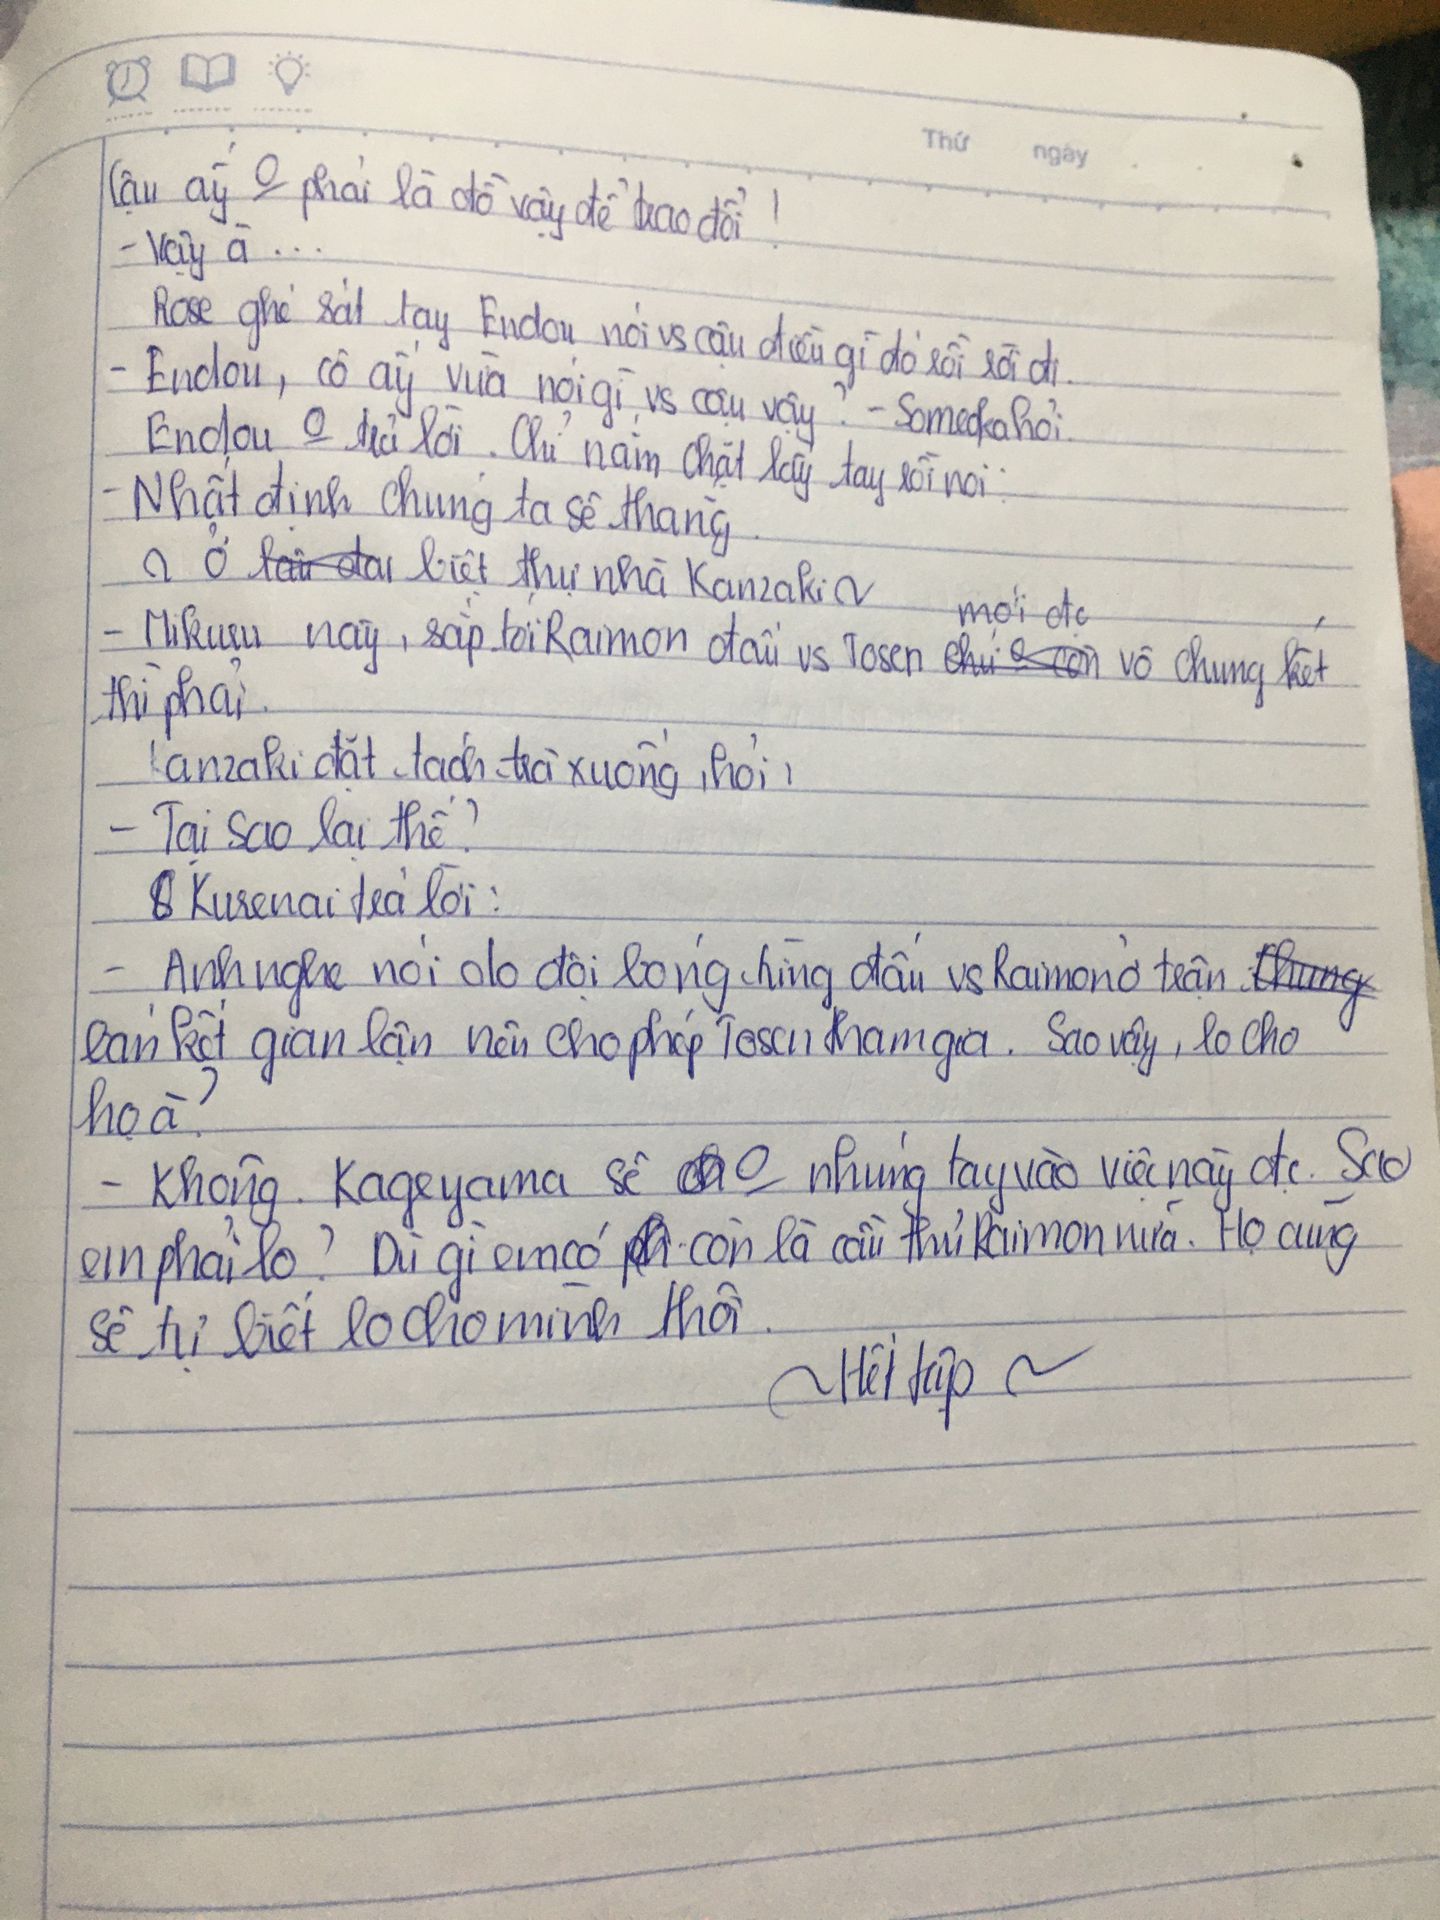 Thứ ngày
Cậu ấy 0 phải là đồ vậy để trao đổi!
- Vậy à ...
Rose ghé sát tay Endou nói vs cậu điều gì đó rồi rời đi.
- Endou, cô ấy vừa nói gì vs cậu vậy? - Someoka hỏi.
Endou 0 trả lời. Chỉ nắm chặt lấy tay rồi nói:
- Nhất định chúng ta sẽ thắng.
~ Ở biệt thự nhà Kanzaki ~
mới đc
- Mikuru này, sắp tới Raimon đấu vs Tosen vô chung kết
thì phải.
Kanzaki đặt tách trà xuống, hỏi,
- Tại sao lại thế?
Kurenai trả lời:
- Anh nghe nói do đội bóng từng đấu vs Raimon ở trận
bán kết gian lận nên cho phép Tosen tham gia. Sao vậy, lo cho
họ à?
- Không. Kageyama sẽ 0 nhúng tay vào việc này đc. Sao
em phải lo? Dù gì em có còn là cầu thủ Raimon nữa. Họ cũng
sẽ tự biết lo cho mình thôi.
~ Hết tập ~